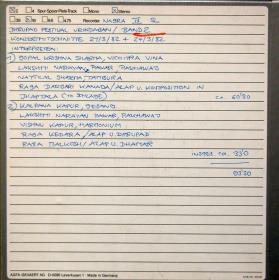 Spur-Spool-Piste-Track Mono Stereo
38 19 9.5 4.75 Recorder NAGRA IV S
DHRUPAD FESTIVAL VRINDABAN / BAND 2
KONZERTSCHNITTE 21/3/82 + 24/3/82
INTERPRETEN:
1) GOPAL KRISHNA SHARMA, VICHITRA VINA
LAKSHMI NARAYAN PAWAR, PAKHAWAJ
SHARMA TAMBURA
RAGA DARBARI KANADA / ALAP U. KOMPOSITION IN
JHAPTALA (10 SCHLÄGE) ca. 60'30
2) KALPANA KAPUR, GESANG
LAKSHMI NARAYAN PAWAR, PAKHAWAJ
VISHNU KAPUR, HARMONIUM
RAGA KEDARA / ALAP U. DHRUPAD
RAGA MALKOSH / ALAP U. DHAMAR
INSGES. ca. 33'0
93'30
AGFA-GEVAERT AG D-5090 Leverkusen 1 Made in Germany